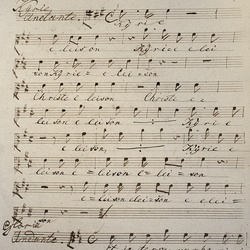 Kyrie
Andante. Kyrie
eleison Kyrie elei
=son Kyrie= e lei=son
Christe eleison Christe e=
leison eleison Kyrie
eleison, Kyrie
eleison e=leison e=lei=son
e=leison elei=son e elei=
son
Gloria
Andante
Et in terra